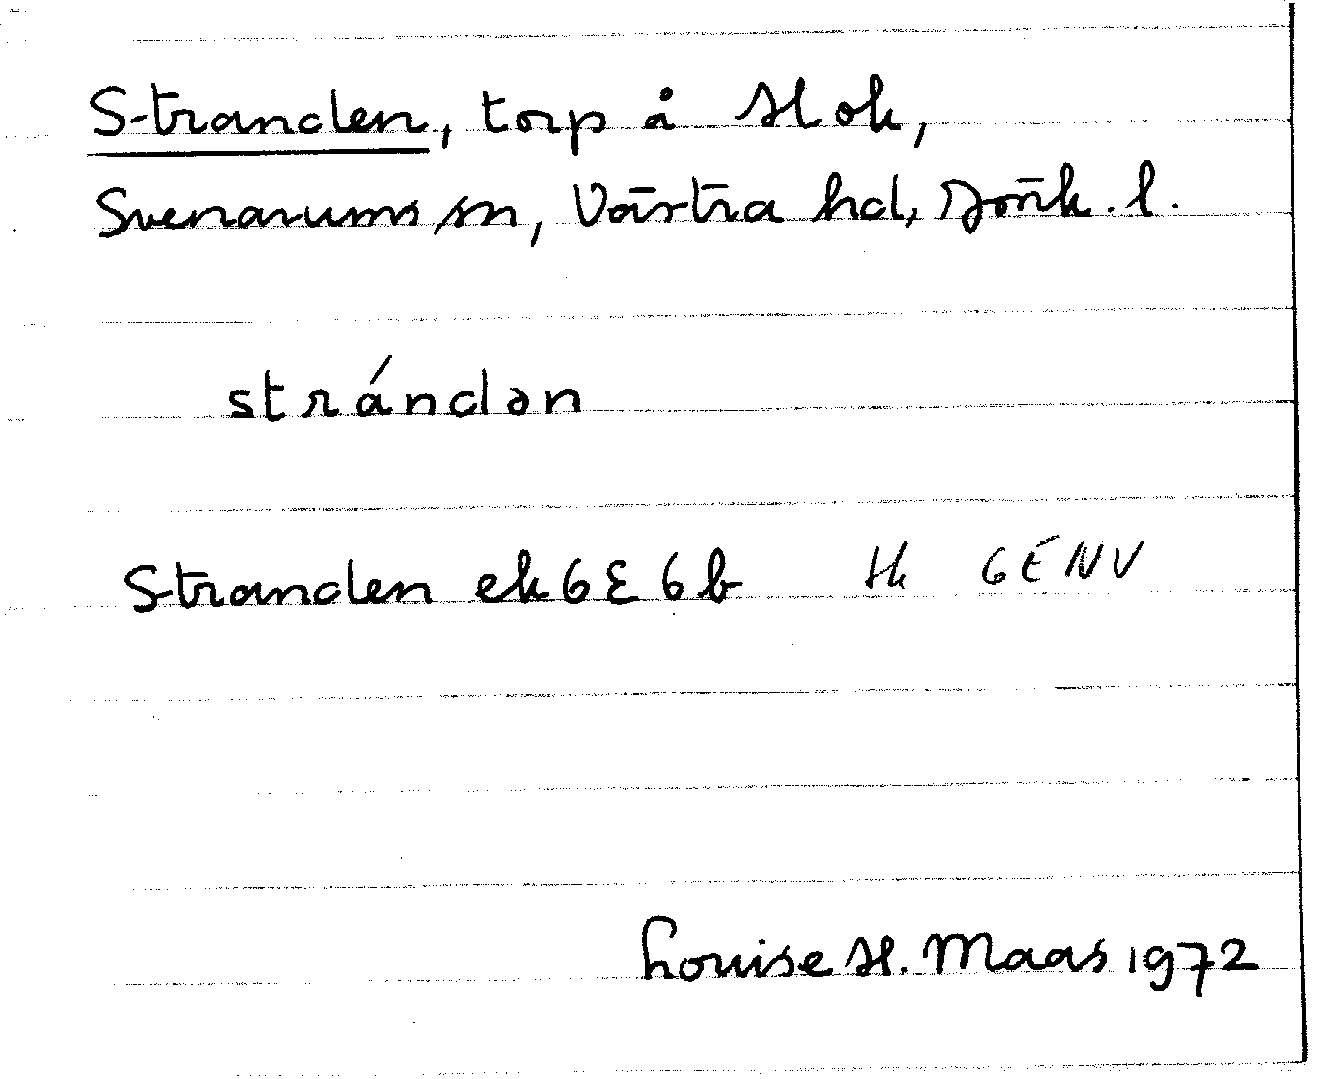 Stranden, torp å Hok,
Svenarums sn, Västra hd, Jönk. l.
strándən
Stranden ek 6E 6b tk 6ENV
Louise H. Maas 1972